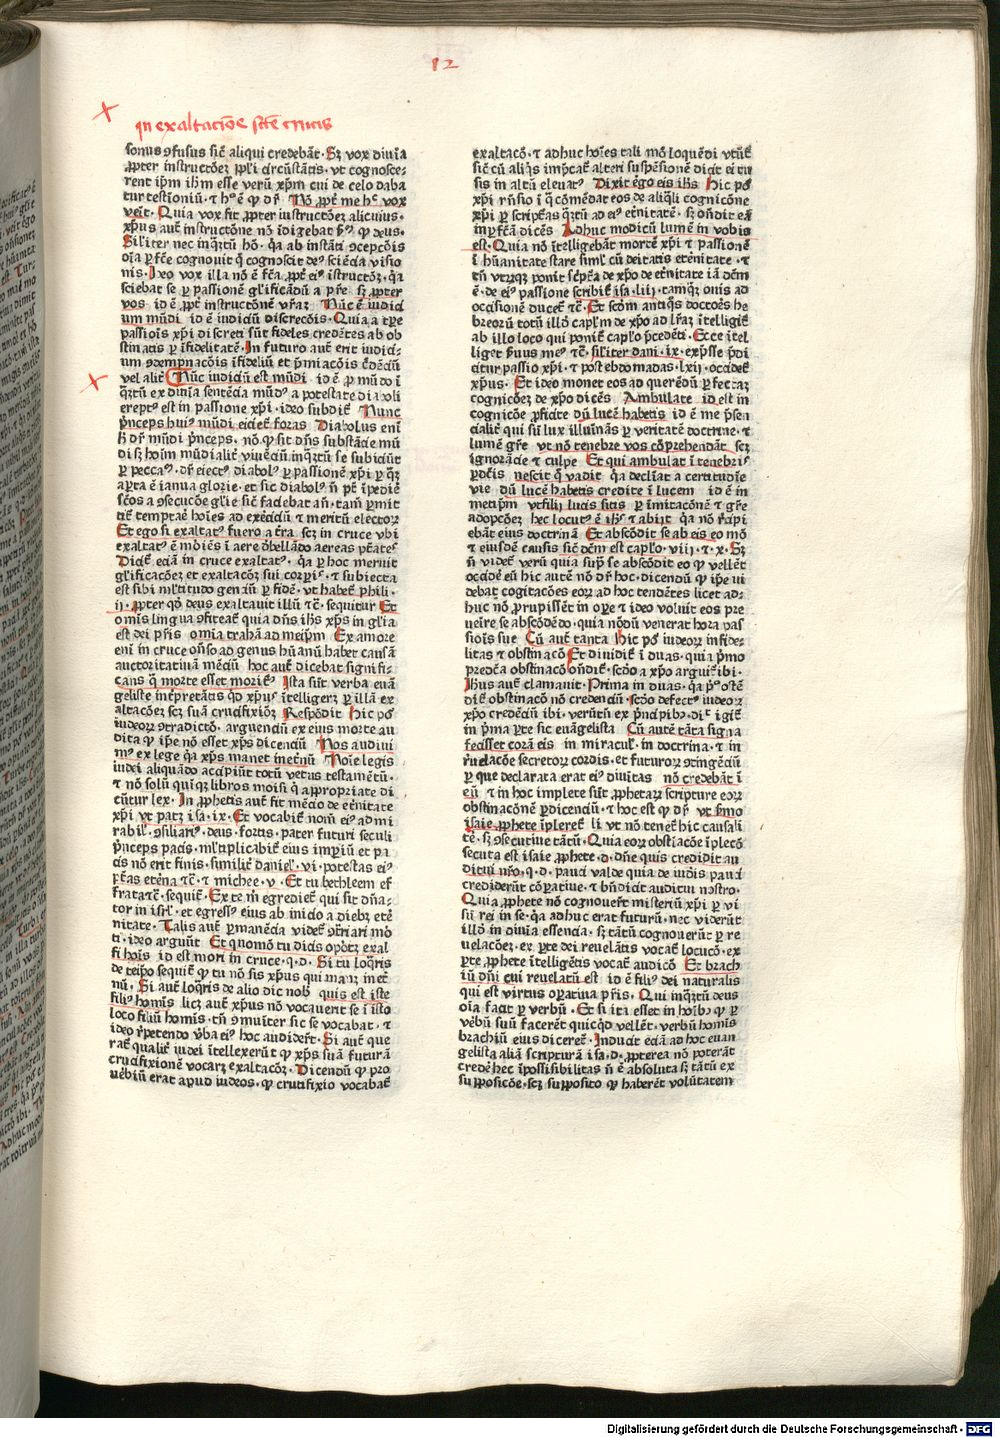 12
In exaltacōe sctē crucis
sonus ɔfusus sic̄ aliqui credebāt. Sꝫ vox diuīa
ꝓpter instructōeꝫ ppl̄i circūstātis. vt cognosce-
rent ip̄m ih̄m esse verū xp̄m cui de celo daba
tur testioniū. ⁊ hͦ ē ꝙ dr̄. Nō ꝓpt̄ me hͤ vox
veīt. Quia vox fit ꝓpter instructōeꝫ alicuius.
xp̄us aut̄ instructōne nō īdigebat
Sil'iter nec inqꝫtū hō. qꝛ ab instāti ɔcepcōis
oīa ꝑfc̄e cognouit
nis. Ideo vox illa nō ē fc̄a ꝓpt̄ eiꝰ īstructōꝫ. qꝛ
sciebat se ꝑ passionē glīficādū a pr̄e sꝫ ꝓpter
vos id ē ꝓpt̄ instructōnē vr̄aꝫ Nūc ē iudici
um mūdi id ē iudiciū discrecōis. Quia a tꝑe
passiōis xp̄i discreti sūt fideles credētes ab ob
stinatis ꝑ īfidelitatē. In futuro aut̄ erit iudici-
um ɔdempnacōis īfideliū et p̄miacōis
vel alit̄ Nūc iudiciū est mūdi id ē ꝓ mūdo ī
qꝫtū ex diuīa sentēcia mūdꝰ a potestate diaboli
ereptꝰ est in passione xp̄i. ideo subdit̄ Nunc
p̄nceps huiꝰ mūdi eiciet̄ foras Diabolus enī
dr̄ mūdi p̄nceps. nō ꝙ sit dn̄s substācie mū
di sꝫ hoīm mūdialit̄ viuēciū inqꝫtū se subiciūt
ꝑ peccaᵃ. dr̄ eiectꝰ diabolꝰ ꝑ passionē xp̄i ꝑ qꝫ
aꝑta ē ianua glorie. et sic diabolꝰ
scōs a ɔsecucōe gl'ie sic̄ faciebat
tit̄ temptare hoīes ad exercitiū ⁊ meritū electoꝝ
Et ego si exaltatꝰ fuero a t̄ra. scꝫ in cruce vbi
exaltatꝰ ē moriēs ī aere
Dicit̄ eciā in cruce exaltatꝰ. qꝛ ꝑ hoc meruit
gl'ificacōeꝫ et exaltacōꝫ sui corꝑis. ⁊ subiecta
est sibi ml'titudo genciū ꝑ fidē. vt habet̄ phili.
ij. ꝓpter qd̄ deus exaltauit illū ⁊c̄. sequitur Et
om̄is lingua ɔfiteat̄ quia dn̄s ih̄s xp̄s in gl'ia
est dei pr̄is omīa trahā ad meip̄m Ex amore
enī in cruce
auctoritatiuā mēciū hoc aut̄ dicebat signifi-
cans q̄ morte esset moritꝰ Ista sūt verba euā
geliste int̄pretātis qd̄ xp̄us ītelligeret ꝑ illā ex
altacōeꝫ scꝫ suā crucifixiōꝫ Respōdit Hic pōˢ
iudeorꝫ ɔtradictō. arguenciū ex eius morte au
dita ꝙ ip̄e nō esset xp̄s dicenciū Nos audiui
mꝰ ex lege qꝛ xp̄s manet ineternū Noīe legis
iudei aliquādo accipiūt totū vetus testamētū.
⁊ nō solū quīqꝫ libros moisi q̄ appropriate di
cūtur lex. In ꝓphetis aut̄ fit mēcio de et̄nitate
xp̄i vt patꝫ isa. ix. Et vocabit̄ nom̄ eiꝰ admi
rabil'. ɔsiliariꝰ. deus. fortis. pater futuri seculi
p̄nceps pacis. ml'tiplicabit̄ eius imperiū et pa
cis nō erit finis. similit̄ daniel'. vi. potestas eiꝰ
p̄tas et̄na ⁊c̄. ⁊ michee. v. Et tu bethleem ef
frata ⁊c̄. sequit̄. Ex te m̄ egrediet̄ qui sit dn̄a-
tor in isrl'. et egressꝰ eius ab inicio a diebꝫ ete
nitate. Talis aut̄ ꝑmanēcia videt̄ ɔtrari mō
ti. ideo arguūt Et quomō tu dicis oportꝫ exal
fi hoīs id est mori in cruce. q. d. Si tu loq̄ris
de teip̄o sequit̄ ꝙ tu nō sis xp̄us qui manꝫ inet̄
nū. Si aut̄ loq̄ris de alio dic nob̄ quis est iste
filiꝰ homīs licꝫ aut̄ xp̄us nō vocauerit se ī isto
loco filiū homīs. tn̄ ɔmuīter sic se vocabat. ⁊
ideo r̄petendo v̄ba eiꝰ hoc audidert̄. Si aut̄ que
rat̄ qualit̄ iudei ītellexerūt ꝙ xp̄s suā futurā
crucifixionē vocarꝫ exaltacōꝫ. Dicendū ꝙ pro
uēbiū erat apud iudeos. ꝙ crucifixio vocabat̄
exaltacō. ⁊ adhuc hoīes tali mō loquēdi vtūt̄
sic̄ cū aliq̄s imp̄cat̄ alteri suspēsionē dicit ei tu
sis in altū eleuatꝰ Dixit ergo eis ih̄s Hic pōˢ
xp̄i rn̄sio ī q̄ cōmēdat eos de aliq̄li cognicōne
xp̄i ꝑ script̄as q̄ꝫtū ad eiꝰ et̄nitatē. sꝫ on̄dit eā
inꝑfc̄ā dicēs Adhuc modicū lumē in vobis
est. Quia nō ītelligebāt mortē xp̄i ⁊ passionē
ī hūanitate stare siml' cū deitatis et̄nitate. ⁊
tn̄ vtrūqꝫ ponit sc̄pt̄a de xp̄o de et̄nitate iā dc̄m
ē. de eiꝰ passione scribit̄ isa. liij. tamq̄ꝫ ouis ad
occisionē ducet̄ ⁊c̄. Et scd̄m antiq̄s doctores he
breorū totū illd̄ capl'm de xp̄o ad lr̄aꝫ ītelligit̄
ab illo loco qui ponit̄ capl'o p̄cedēti. Ecce ītel
liget ẜuus meꝰ ⁊c̄. sil'iter dani. ix. exp̄sse p̄di
citur passio xp̄i. ⁊ post ebdomadas. lxij. occidet̄
xp̄us. Et ideo monet eos ad querēdū ꝑfectaꝫ
cognicōeꝫ de xp̄o dicēs Ambulate id est in
cognicōe ꝓficite dū lucē habetis id ē me p̄sen
cialit̄ qui sū lux illuīnās ꝑ veritatē doctrine. ⁊
lumē gr̄e vt nō tenebre vos cōp̄rehendāt scꝫ
ignorācie ⁊ culpe Et qui ambulat ī tenebriˢ
nescit q̄ vadit qꝛ decl'iat a certitudīe
vie dū lucē habetis credite ī lucem id ē in
meip̄m vt filij lucis sitis ꝑ īmitacōnē ⁊ gr̄e
adopcōeꝫ hec locutꝰ ē ih̄s ⁊ abijt qꝛ nō r̄cipi
ebāt eius doctrinā Et abscōdit se ab eis eo mō
⁊ eiusdē causis sic̄ dc̄m est capl'o. viij. ⁊ x. Sꝫ
n̄ videt̄ verū quia supͣ se abscōdit eo ꝙ vellēt
occidē eū hic autē nō dr̄ hoc. dicendū ꝙ ip̄e vi
debat cogitacōes eoꝝ ad hoc tendētes licet ad-
huc nō ꝓrupissēt in oꝑe ⁊ ideo voluit eos pre
ueīre se abscōdēdo. quia nōdū venerat hora pas
siōis sue Cū aut̄ tanta Hic pōˢ iudeoꝝ infide-
litas ⁊ obstinacō Et diuidit̄ ī duas. quia p̄mo
predc̄a obstinacō on̄dit̄. scd̄o a xp̄o arguit̄ ibi.
Ihus aut̄ clamauit. Prima in duas. qꝛ pͥᵒ ostē
dit̄ obstinacō nō credenciū. scd̄o defectꝰ iudeoꝝ
xp̄o credēciū ibi. verūtn̄ ex p̄ncipibꝫ. Dicit igit̄
in p̄ma ꝑte sic euāgelista Cū autē tāta signa
fecisset corā eis in miracul'. in doctrina. ⁊ in
reuelacōe secretoꝝ cordis. et futuroꝝ ɔtingēciū
ꝑ que declarata erat eiꝰ diuitas nō credebāt ī
eū ⁊ in hoc implete sūt ꝓphetaꝝ scripture eoꝝ
obstinacōnē ꝑdicenciū. ⁊ hoc est ꝙ dr̄ vt sermo
isaie ꝓphete īpleret̄ li vt nō tenet̄ hic causali
tē. sꝫ ɔsecutiue tātū. Quia eoꝝ obstiacōe īpletō
secuta est isaie ꝓphete. d. dn̄e quis credidit au
ditui nr̄o. q. d. pauci valde quia de iudeis pauci
crediderūt cōpatiue. ⁊ bn̄dicit auditui nostro.
Quia ꝓphete nō cognouert̄ misteriū xp̄i ꝑ vi
sū rei in se. qꝛ adhuc erat futurū. nec viderūt
illd̄ in diuia essencia. sꝫ tātū cognouerūt ꝑ re
uelacōeꝫ. ex ꝑte dei reuelātis vocat̄ locucō. ex
ꝑte ꝓphete ītelligētis vocat̄ audicō Et brach
iū dn̄i cui reuelatū est id ē filiꝰ dei naturalis
qui est virtus oꝑatiua pr̄is. Qui inqꝫtū deus
oīa facit ꝑ verbū. Et si ita esset in hoībꝫ ꝙ ꝑ
v̄bū suū facerēt quicqd̄ vellēt. verbū homīs
brachiū eius dicerēt̄. Inducit eciā ad hoc euan
gelista aliā scripturā isa. d. ꝓpterea nō poterāt
credē hec īpossibilitas n̄ ē absoluta sꝫ tātū ex
suꝓposicōe. scꝫ suꝓposito ꝙ haberēt volūtatem
Digitalisierung gefördert durch die Deutsche Forschungsgemeinschaft - DFG